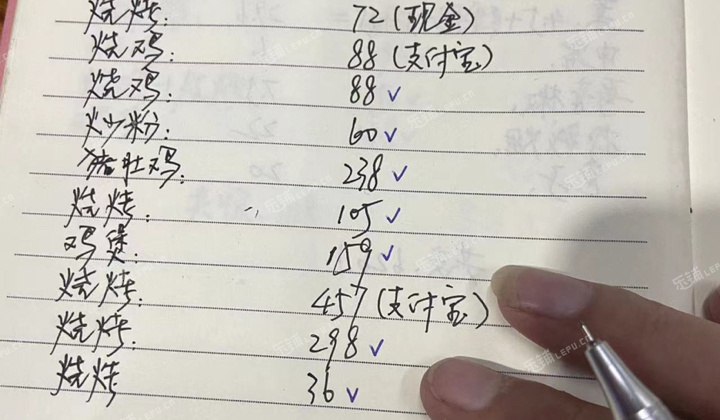 烧烤: 72 (现金)
烧鸡: 88 (支付宝)
烧鸡: 88 ✓
炒粉: 60 ✓
猪肚鸡: 238 ✓
烧烤: 105 ✓
鸡煲: 159 ✓
烧烤: 457 (支付宝)
烧烤: 298 ✓
烧烤 36 ✓
乐铺LEPU.CN